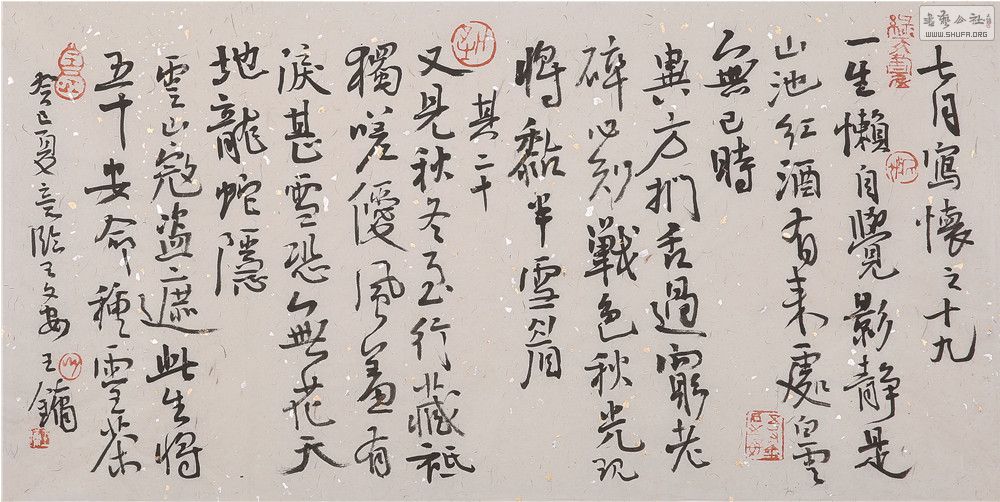 七月寫懷之十九
一生懶自覺影靜是
山池紅酒有来處白雲
無已時
異方捫舌過窮老
碎心刻戰色秋光现
將黏半雪眉
其二十
又見秋冬至行藏祗
獨嗟優風羞有
淚甚雪恐無花天
地龍蛇隱
雲山寇盜遮此生將
五十安命種雲茶
癸巳夏 王鏞
書藝公社
WWW.SHUFA.ORG